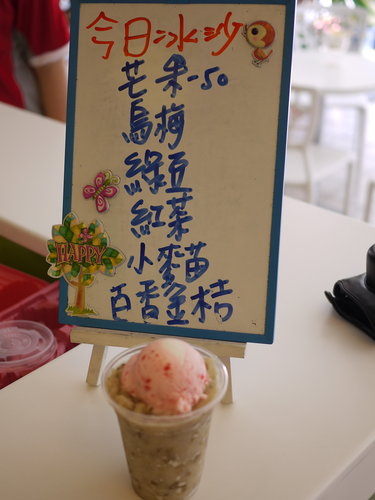 今日冰沙
芒果-50
烏梅
綠豆
紅茶
小麥苗
百香金桔
HAPPY